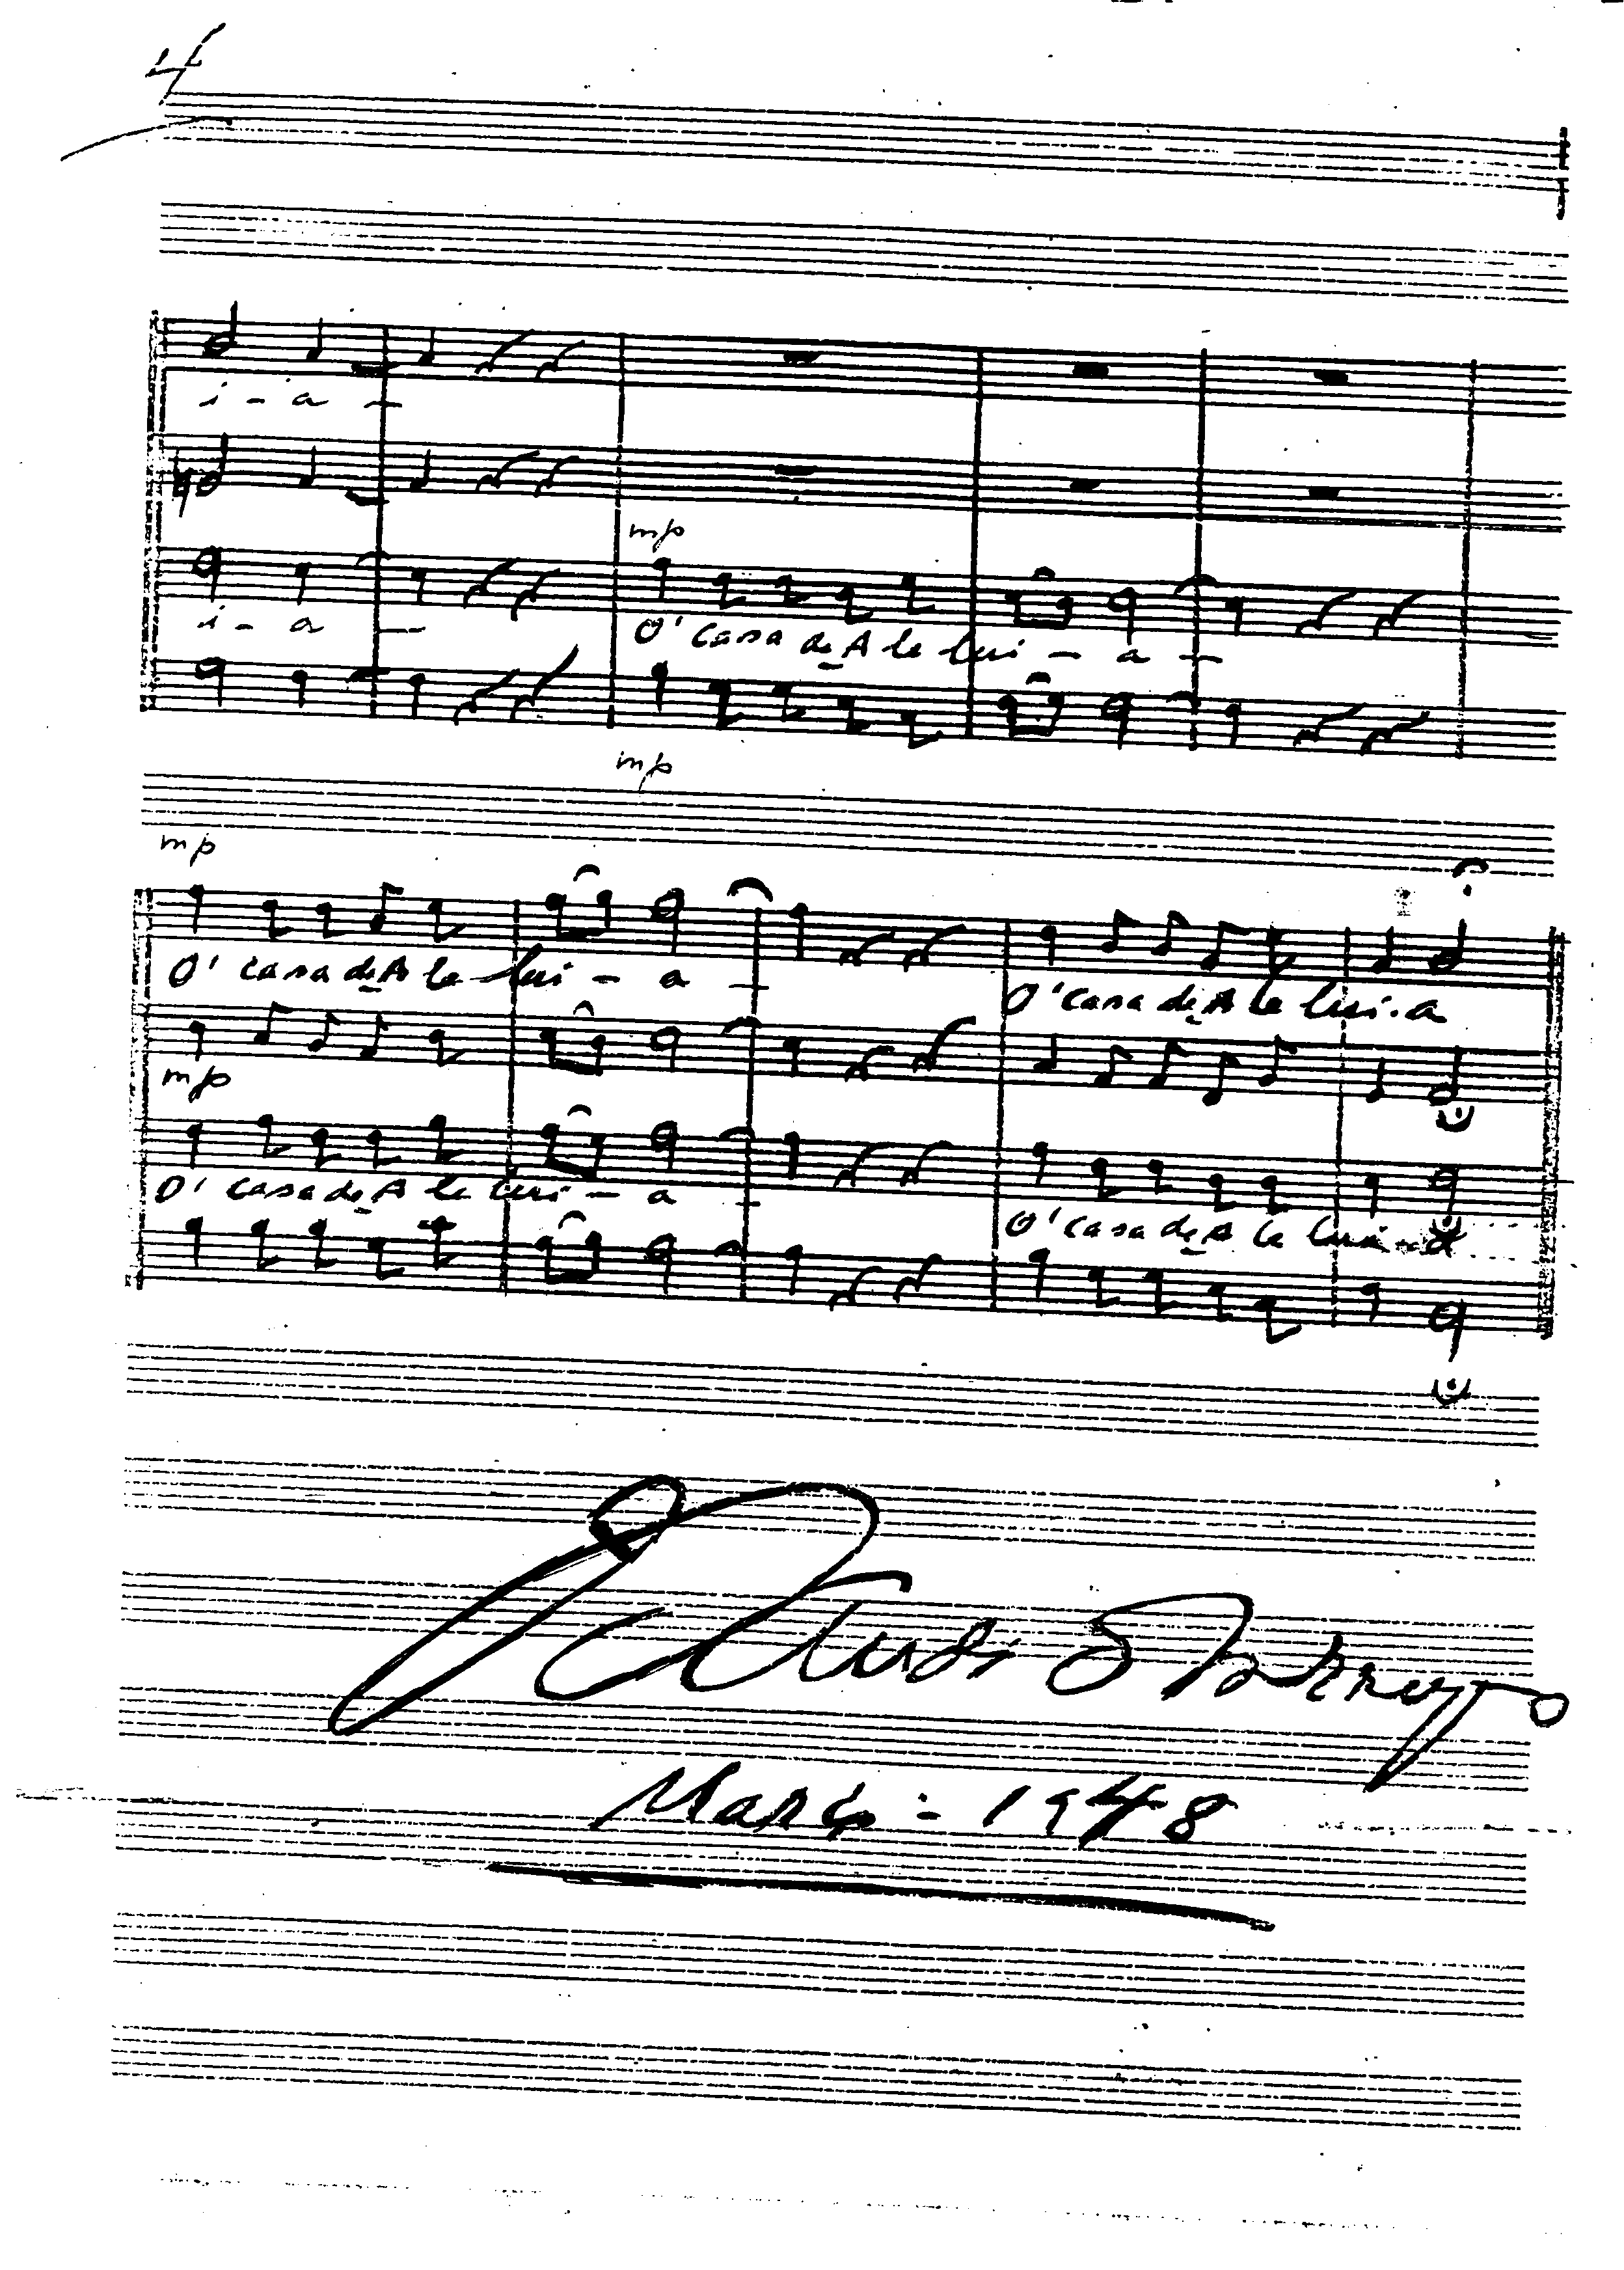 4
i - a -
mp
i - a - O' casa de A le lui - a -
mp
mp
O' casa de A le lui - a - O' casa de A le lui - a
mp
O' casa de A le lui - a - O' casa de A le lui - a
Março - 1948